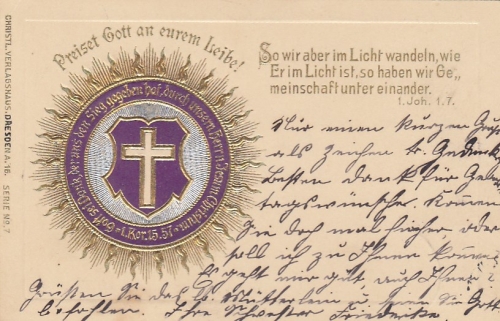 CHRISTL. VERLAGSHAUS, DRESDEN A. 16. SERIE No. 7
Preiset Gott an eurem Leibe!
Gott sei Dank, der uns den Sieg gegeben hat, durch unsern Herrn Jesum Christum
1. Kor. 15, 57
So wir aber im Licht wandeln, wie
Er im Licht ist, so haben wir Ge„
meinschaft unter einander.
1. Joh. 1. 7.
Nur einen kurzen Gruß
als Zeichen
Besten Dank für
tagswünsche. Kommen
Sie doch mal hierher oder
soll ich zu Ihnen kommen
Es geht mir gut, auch Ihnen
Grüßen Sie
befohlen. Ihre Schwester Friederike